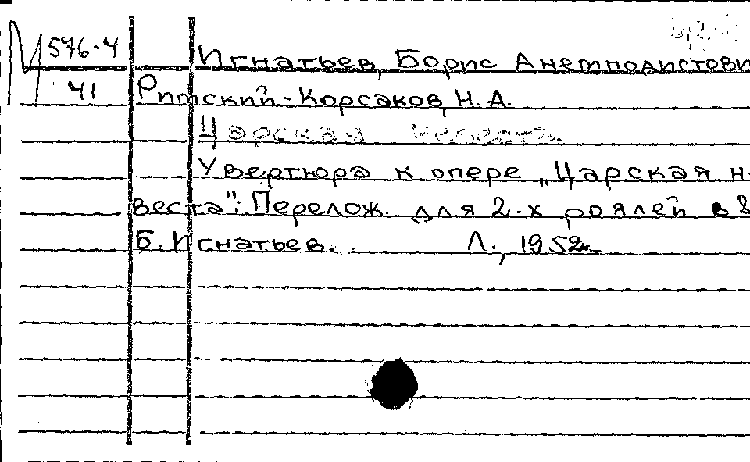 М576-4 Игнатьев, Борис Анемподистови
41 Римский-Корсаков, Н.А.
Царская невеста.
Увертюра к опере „Царская н-
веста": Перелож. для 2-х роялей в 8
Б. Игнатьев. Л., 1952г.